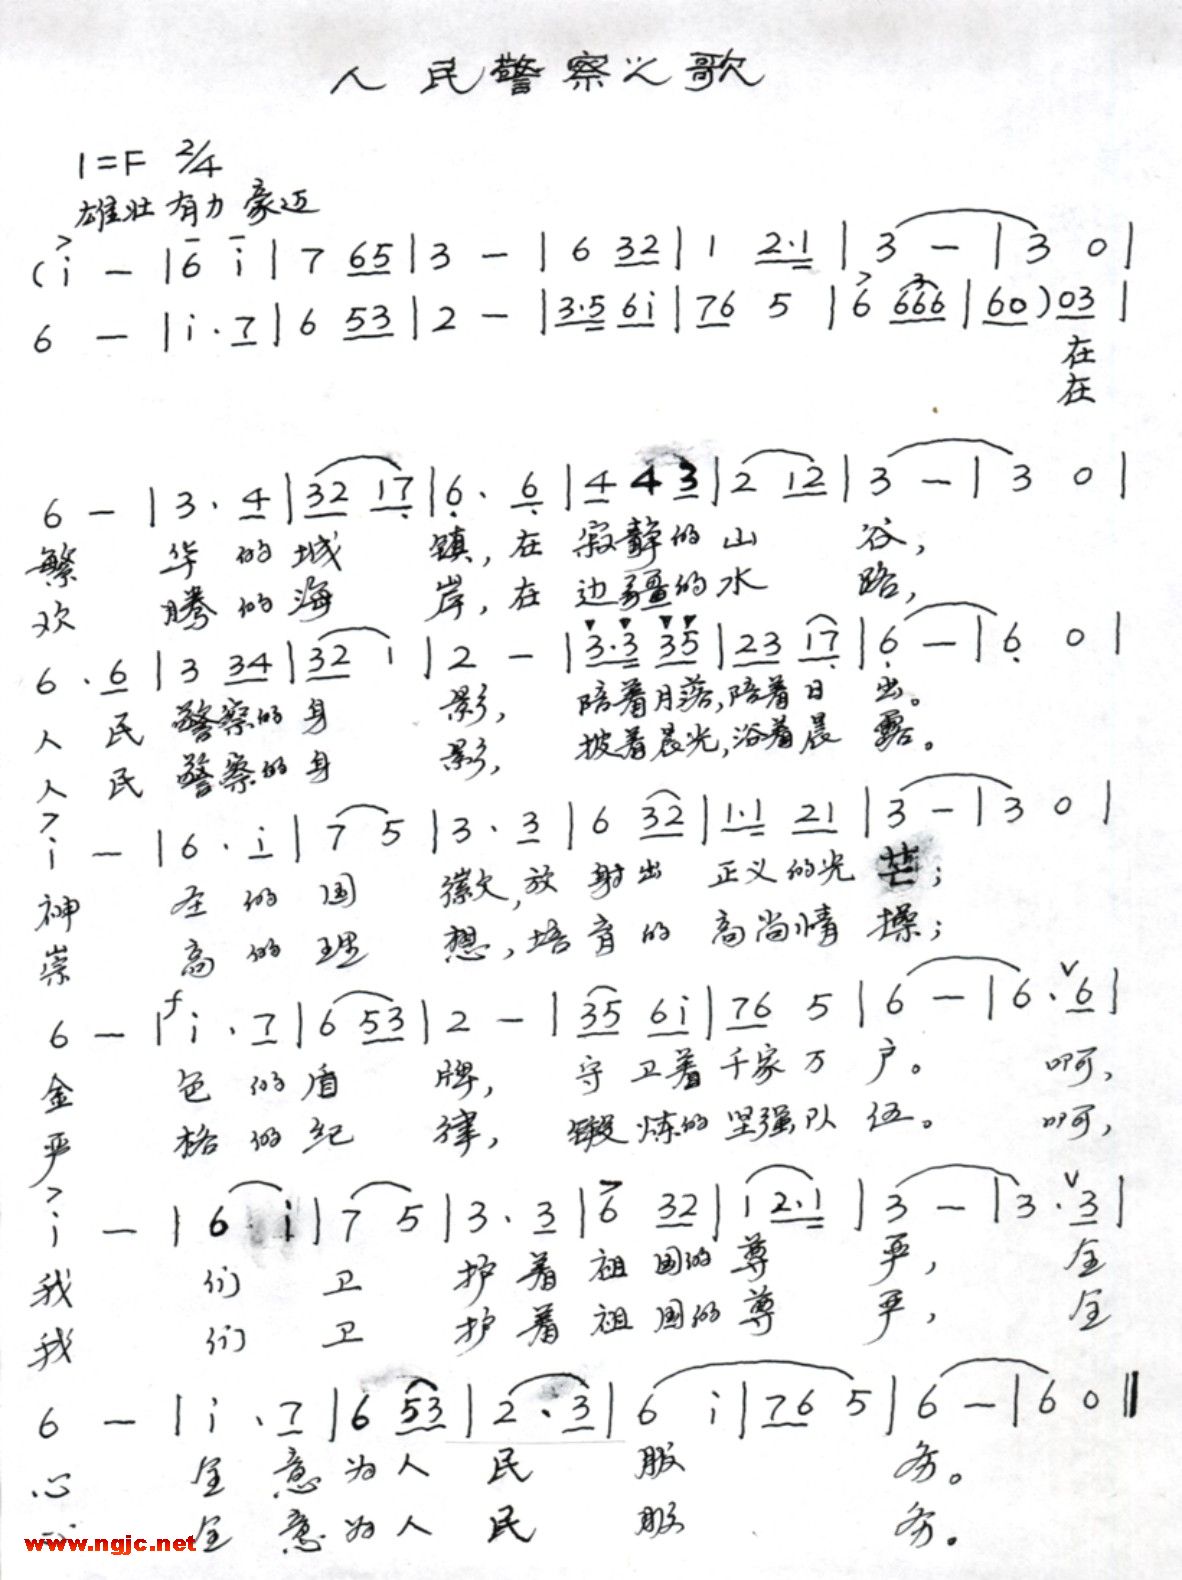 人民警察之歌
1=F 2/4
雄壮有力 豪迈
(i - | 6 i | 7 65 | 3 - | 6 32 | 1 2·1 | 3 - | 3 0 |
6 - | i·7 | 6 53 | 2 - | 3·5 6i | 76 5 | 6 666 | 60) 03 |
在
在
6 - | 3·4 | 32 17 | 6·6 | 4 43 | 2 12 | 3 - | 3 0 |
繁 华的城 镇,在 寂静的山 谷,
欢 腾的海 岸,在 边疆的水 路,
6·6 | 3 34 | 32 1 | 2 - | 3·3 35 | 23 17 | 6 - | 6 0 |
人民 警察的身 影, 陪着月落,陪着日 出。
人民 警察的身 影, 披着晨光,浴着晨 露。
i - | 6·i | 7 5 | 3·3 | 6 32 | 1·1 21 | 3 - | 3 0 |
神 圣的国 徽,放 射出 正义的光 芒;
崇 高的理 想,培 育的 高尚情 操;
6 - | f i·7 | 6 53 | 2 - | 35 6i | 76 5 | 6 - | 6·6 |
金 色的盾 牌, 守卫着千家万 户。 啊,
严 格的纪 律, 锻炼的坚强队 伍。 啊,
i - | 6 i | 7 5 | 3·3 | 6 32 | 1 2·1 | 3 - | 3·3 |
我 们 卫 护着 祖国的尊 严, 全
我 们 卫 护着 祖国的尊 严, 全
6 - | i·7 | 6 53 | 2·3 | 6 i | 76 5 | 6 - | 6 0 ‖
心 全意为人 民 服 务。
心 全意为人 民 服 务。
www.ngjc.net